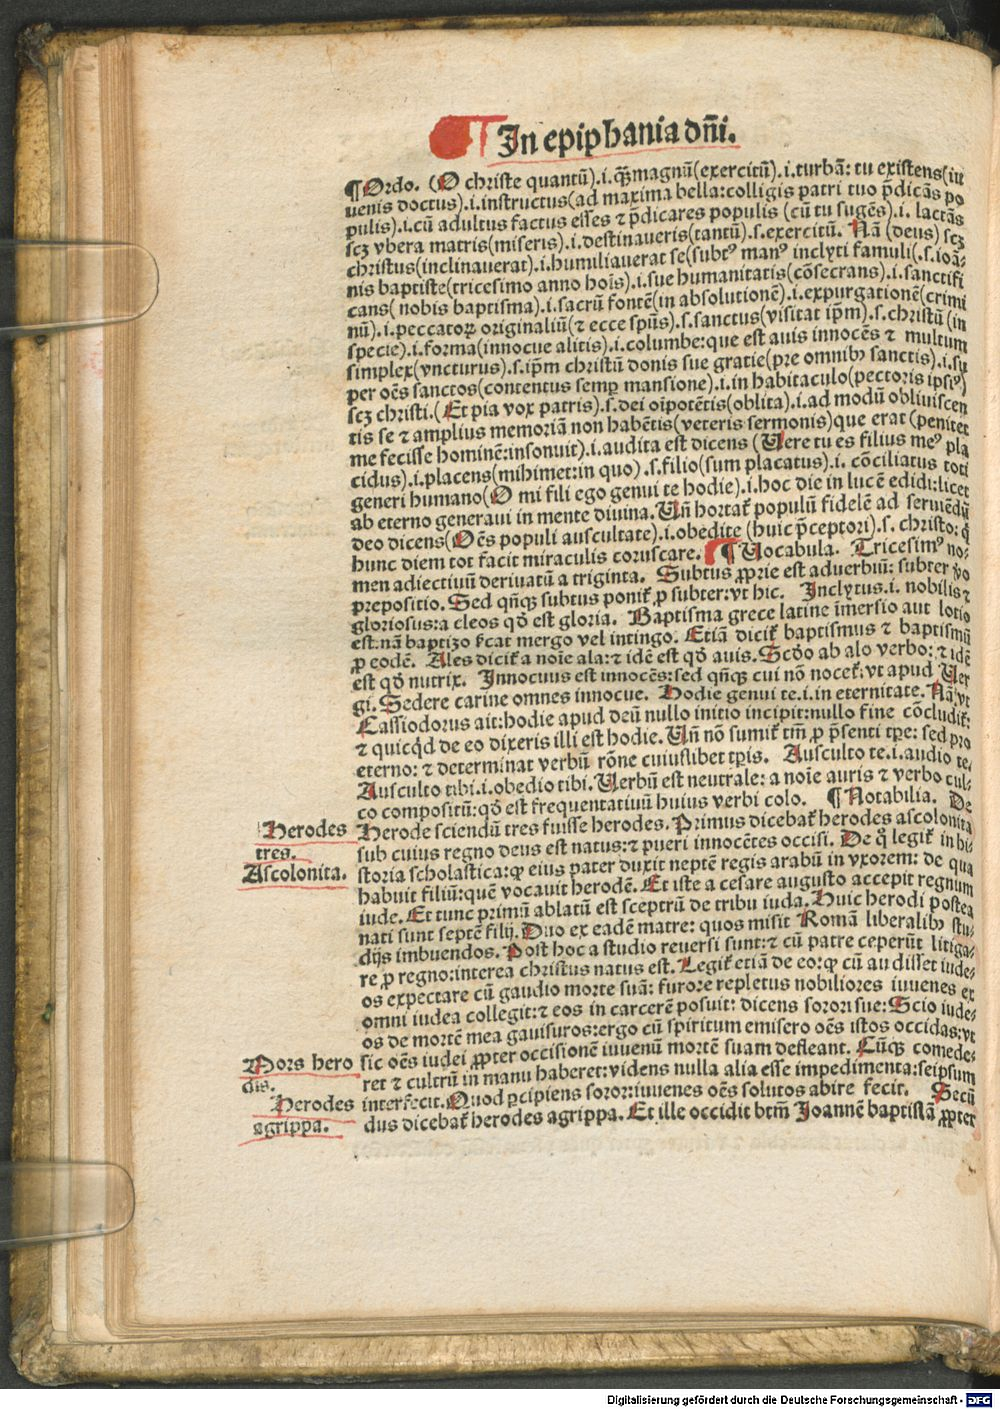 ¶ In epiphania dñi.
¶Ordo. (O christe quantũ).i.q̃ꝫ magnũ(exercitũ).i.turbã: tu existens(iu
uenis doctus).i.instructus(ad maxima bella:colligis patri tuo p̃dicãs po
pulis).i.cũ adultus factus esses ⁊ p̃dicares populis (cũ tu sugẽs).i. lactãs
scꝫ vbera matris(miseris).i.destinaueris(tantũ).s.exercitũ. Nã (deus) scꝫ
christus(inclinauerat).i.humiliauerat se(subtꝰ manꝰ inclyti famuli(.s.ioã-
nis baptiste(tricesimo anno hoĩs).i.sue humanitatis(cõsecrans).i.sanctifi
cans( nobis baptisma).i.sacrũ fontẽ(in absolutionẽ).i.expurgationẽ(crimi
nũ).i.peccatoꝝ originaliũ(⁊ ecce spũs).s.sanctus(visitat ip̃m).s.christũ (in
specie).i.forma(innocue alitis).i.columbe:que est auis innocẽs ⁊ multum
simplex(vncturus).s.ip̃m christũ donis sue gratie(pre omnibꝫ sanctis).i.su
per oẽs sanctos(contentus semꝑ mansione).i.in habitaculo(pectoris ipsiꝰ)
scꝫ christi.(Et pia vox patris).s.dei oĩpotẽtis(oblita).i.ad modũ obliuiscen
tis se ⁊ amplius memoriã non habẽtis(veteris sermonis)que erat (penitet
me fecisse hominẽ:insonuit).i.audita est dicens (Uere tu es filius meꝰ pla
cidus).i.placens(mihimet:in quo) .s.filio(sum placatus).i. cõciliatus toti
generi humano(O mi fili ego genui te hodie).i.hoc die in lucẽ edidi:licet
ab eterno generaui in mente diuina. Uñ hortat᷑ populũ fidelẽ ad seruẽdũ
deo dicens(Oẽs populi auscultate).i.obedite (huic p̃ceptori).s. christo: q̃
hunc diem tot facit miraculis coruscare. ¶ Uocabula. Tricesimꝰ no-
men adiectiuũ deriuatũ a triginta. Subtus ꝓprie est aduerbiũ: subter ṽo
prepositio. Sed qñqꝫ subtus ponit᷑ ꝓ subter:vt hic. Inclytus.i. nobilis ⁊
gloriosus:a cleos qđ est gloria. Baptisma grece latine ĩmersio aut lotio
est:nã baptizo fcat mergo vel intingo. Etiã dicit᷑ baptismus ⁊ baptismũ
ꝓ eodẽ. Ales dicit᷑ a noĩe ala:⁊ idẽ est qđ auis. Scđo ab alo verbo: ⁊ idẽ
est qđ nutrix. Innocuus est innocẽs:sed qñqꝫ cui nõ nocet᷑:vt apud Uer
gi. Sedere carine omnes innocue. Hodie genui te.i.in eternitate. Nã vt
Cassiodorus ait:hodie apud deũ nullo initio incipit:nullo fine cõcludit᷑:
⁊ quicq̃d de eo dixeris illi est hodie. Uñ nõ sumit᷑ tm̃ ꝓ p̃senti tp̃e: sed pro
eterno: ⁊ determinat verbũ rõne cuiuslibet tp̃is. Ausculto te.i.audio te,
Ausculto tibi.i.obedio tibi. Uerbũ est neutrale: a noĩe auris ⁊ verbo cul-
co compositũ:qđ est frequentatiuũ huius verbi colo. ¶ Notabilia. De
Herode sciendũ tres fuisse herodes. Primus dicebat᷑ herodes ascolonita
sub cuius regno deus est natus:⁊ pueri innocẽtes occisi. De q̃ legit᷑ in hi
storia scholastica:ꝙ eius pater duxit neptẽ regis arabũ in vxorem: de qua
habuit filiũ:quẽ vocauit herodẽ. Et iste a cesare augusto accepit regnum
iude. Et tunc primũ ablatũ est sceptrũ de tribu iuda. Huic herodi postea
nati sunt septẽ filij. Duo ex eadẽ matre: quos misit Romã liberalibꝫ stu-
dijs imbuendos. Post hoc a studio reuersi sunt:⁊ cũ patre ceperũt litiga-
re ꝓ regno:interea christus natus est. Legit᷑ etiã de eo:ꝙ cũ audisset iude-
os expectare cũ gaudio morte suã: furore repletus nobiliores iuuenes ex
omni iudea collegit:⁊ eos in carcerẽ posuit: dicens sorori sue:Scio iude-
os de mortẽ mea gauisuros:ergo cũ spiritum emisero oẽs istos occidas:vt
sic oẽs iudei ꝓpter occisionẽ iuuenũ mortẽ suam defleant. Cũqꝫ comede-
ret ⁊ cultrũ in manu haberet:videns nulla alia esse impedimenta:seipsum
interfecit.Quod ꝑcipiens soror:iuuenes oẽs solutos abire fecit. Secũ
dus dicebat᷑ herodes agrippa. Et ille occidit btm̃ Joannẽ baptistã ꝓpter
Herodes
tres.
Ascolonita.
Mors hero
dis.
Herodes
agrippa.
Digitalisierung gefördert durch die Deutsche Forschungsgemeinschaft - DFG